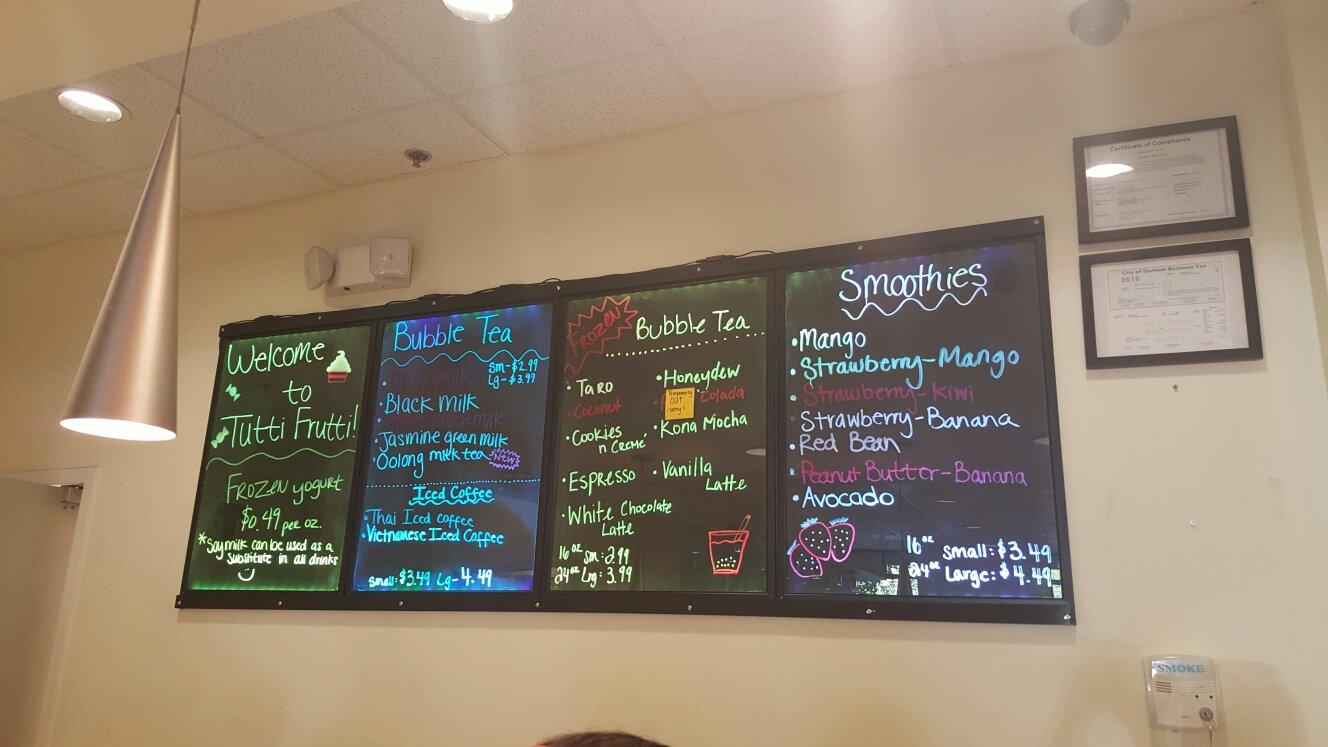 Welcome
to
Tutti Frutti!
Frozen yogurt
$0.49 per oz.
*Soy milk can be used as a
substitute in all drinks
Bubble Tea
Sm-$2.99
Lg-$3.99
milk
Black milk
milk
Jasmine green milk
Oolong milk tea New!
Iced Coffee
Thai Iced coffee
Vietnamese Iced Coffee
Small: $3.49 Lg-4.49
FROZEN
Bubble Tea
Taro
Coconut
Cookies
n Creme
Espresso
White Chocolate
Latte
Honeydew
Colada
Temporarily
OUT
Sorry
Kona Mocha
Vanilla
Latte
16oz Sm: 2.99
24oz Lrg: 3.99
Smoothies
Mango
Strawberry-Mango
Strawberry-Kiwi
Strawberry-Banana
Red Bean
Peanut Butter-Banana
Avocado
16oz small: $3.49
24oz Large: $4.49
Certificate of Compliance
City of Durham Business Tax
2016
SMOKE